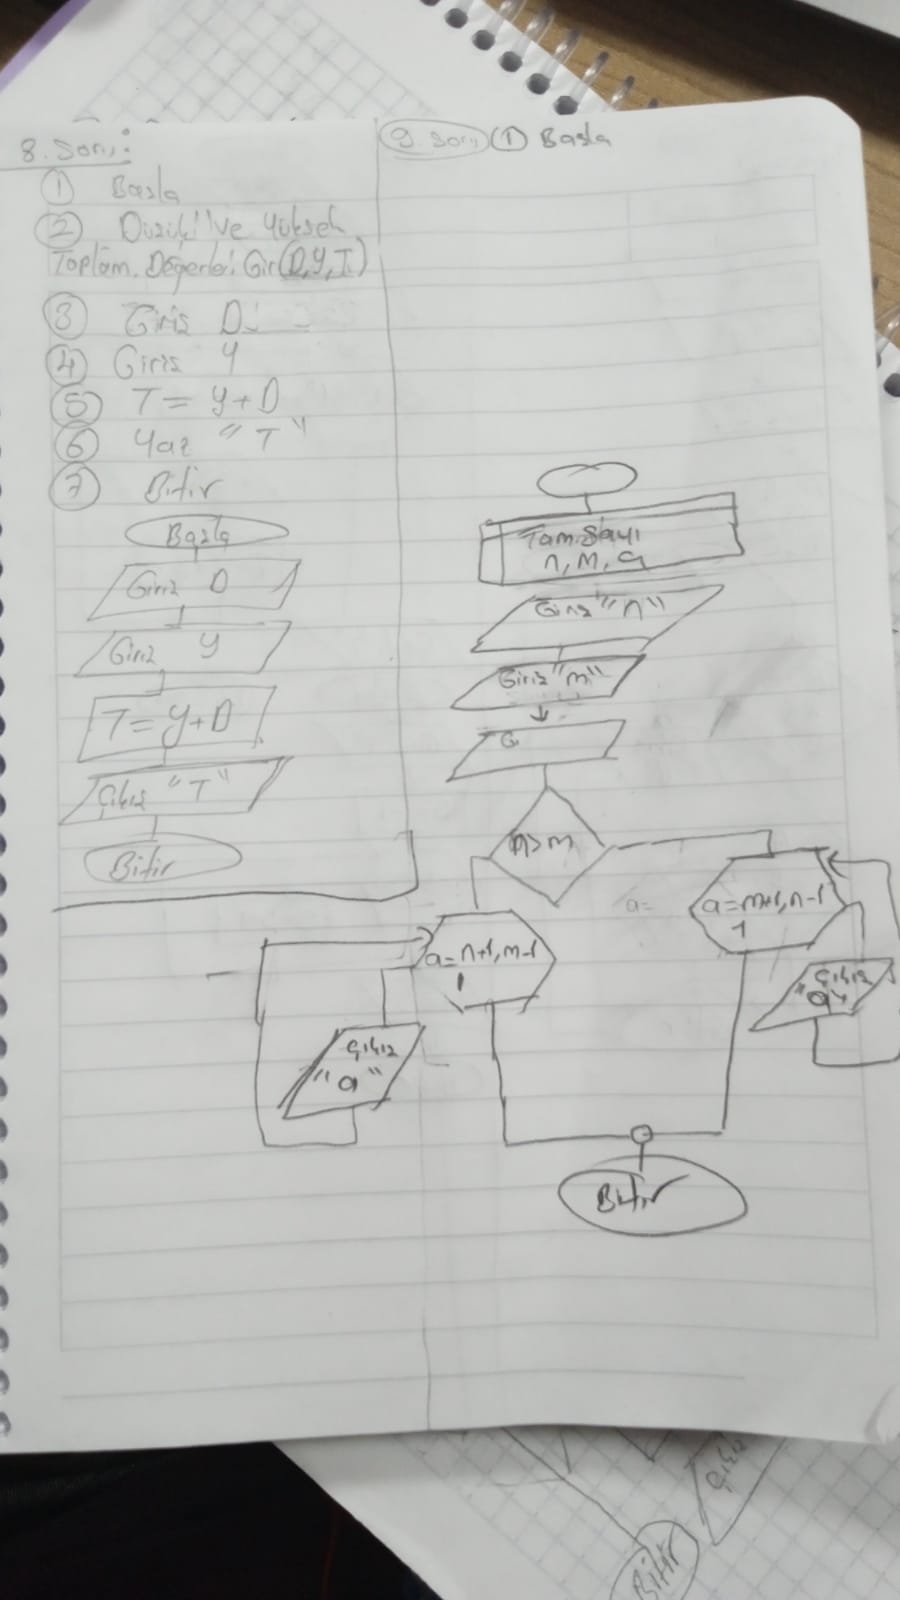 8. Soru:
① Başla
② Düzükl ve Yüksek
Toplam. Değerleri Gir(D,Y,T)
③ Giriş D
④ Giriş Y
⑤ T = Y + D
⑥ Yaz "T"
⑦ Bitir
Başla
Giriş D
Giriş Y
T = Y + D
Çıkış "T"
Bitir
9. Soru ① Başla
Tam Sayı
n, m, a
Giriş "n"
Giriş "m"
n>m
a=
a=n+1, m-1
1
Çıkış
"a"
a=m+1, n-1
1
Çıkış
"a"
Bitir
Çıkış
Bitir